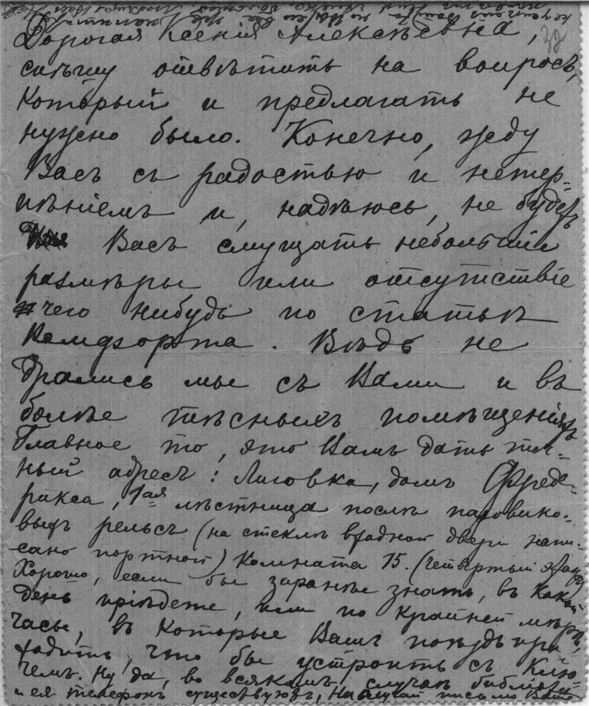 Дорогая Ксенія Алексѣевна,
спѣшу отвѣтить на вопросъ,
который и предлагать не
нужно было. Конечно, жду
Васъ съ радостью и нетер-
пѣніемъ и, надѣюсь, не будутъ
Васъ смущать небольшіе
размѣры или отсутствіе
чего нибудь по статьѣ
Комфорта. Вѣдь не
дрались мы съ Вами и въ
болѣе тѣсныхъ помѣщеніяхъ
Главное то, это Вамъ дать точ-
ный адресъ: Лиговка, домъ Фреде-
рикса, 1ая лѣстница послѣ паровико-
выхъ рельсъ (на стеклѣ входной двери напи-
сано портной) Комната 15. (четвертый этажъ)
Хорошо, если бы заранѣе знать, въ какой
день пріѣдете, или по крайней мѣрѣ,
часы, въ которые Вамъ
ходить, что бы устроить съ клю-
чемъ. Ну да, во всякомъ случаѣ
и ея телефонъ существуютъ, на случай письмо